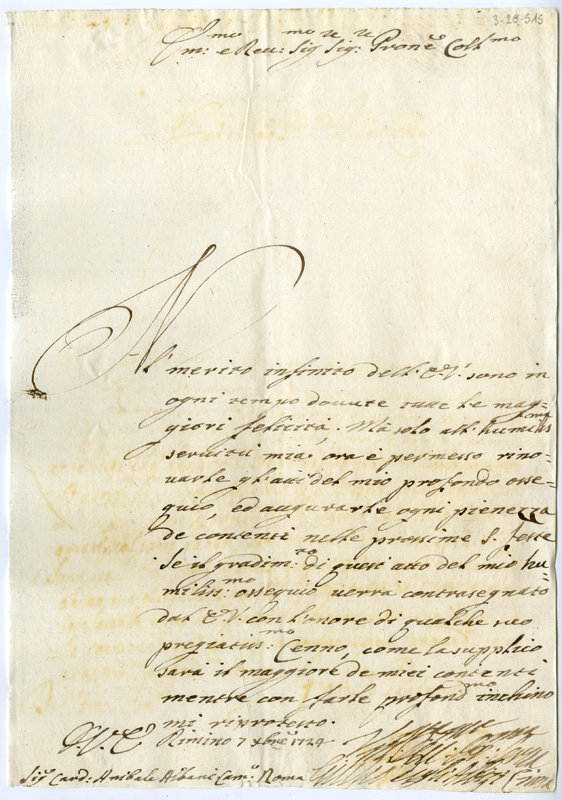 3-28-515
Em:mo e Reu:mo Sig:re Sig:re Pron:e Col:mo
Al merito infinito dell'E.V. sono in
ogni tempo dovute tutte le mag=
giori felicità. Mà solo all'humilis:ma
servitù mia, ora è permesso rino=
varle gl'atti del mio profondo osse=
quio, ed augurarle ogni pienezza
de contenti nelle prossime S. feste
Se il gradim:to di quest atto del mio hu=
milis:mo ossequio verrà contrasegnato
dal E.V. con l'onore di qualche suo
pregiatis:mo Cenno, come la supplico
sarà il maggiore de miei contenti
mentre con farle profond:mo inchino
mi riprotesto.
E.V.E Rimino 7 Xbre 1724
Sig: Card: Anibale Albani Cam:o Roma